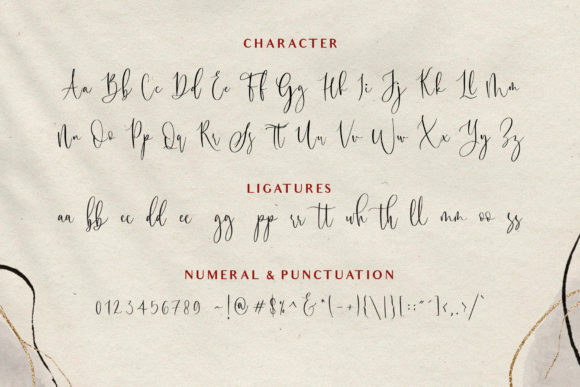 CHARACTER
Aa Bb Cc Dd Ee Ff Gg Hh Ii Jj Kk Ll Mm
Nn Oo Pp Qq Rr Ss Tt Uu Vv Ww Xx Yy Zz
LIGATURES
aa bb cc dd ee gg pp rr tt wh th ll mm oo ss
NUMERAL & PUNCTUATION
0123456789 ~!@#$%^&*(-+){\|}[:;"']<,.>/`